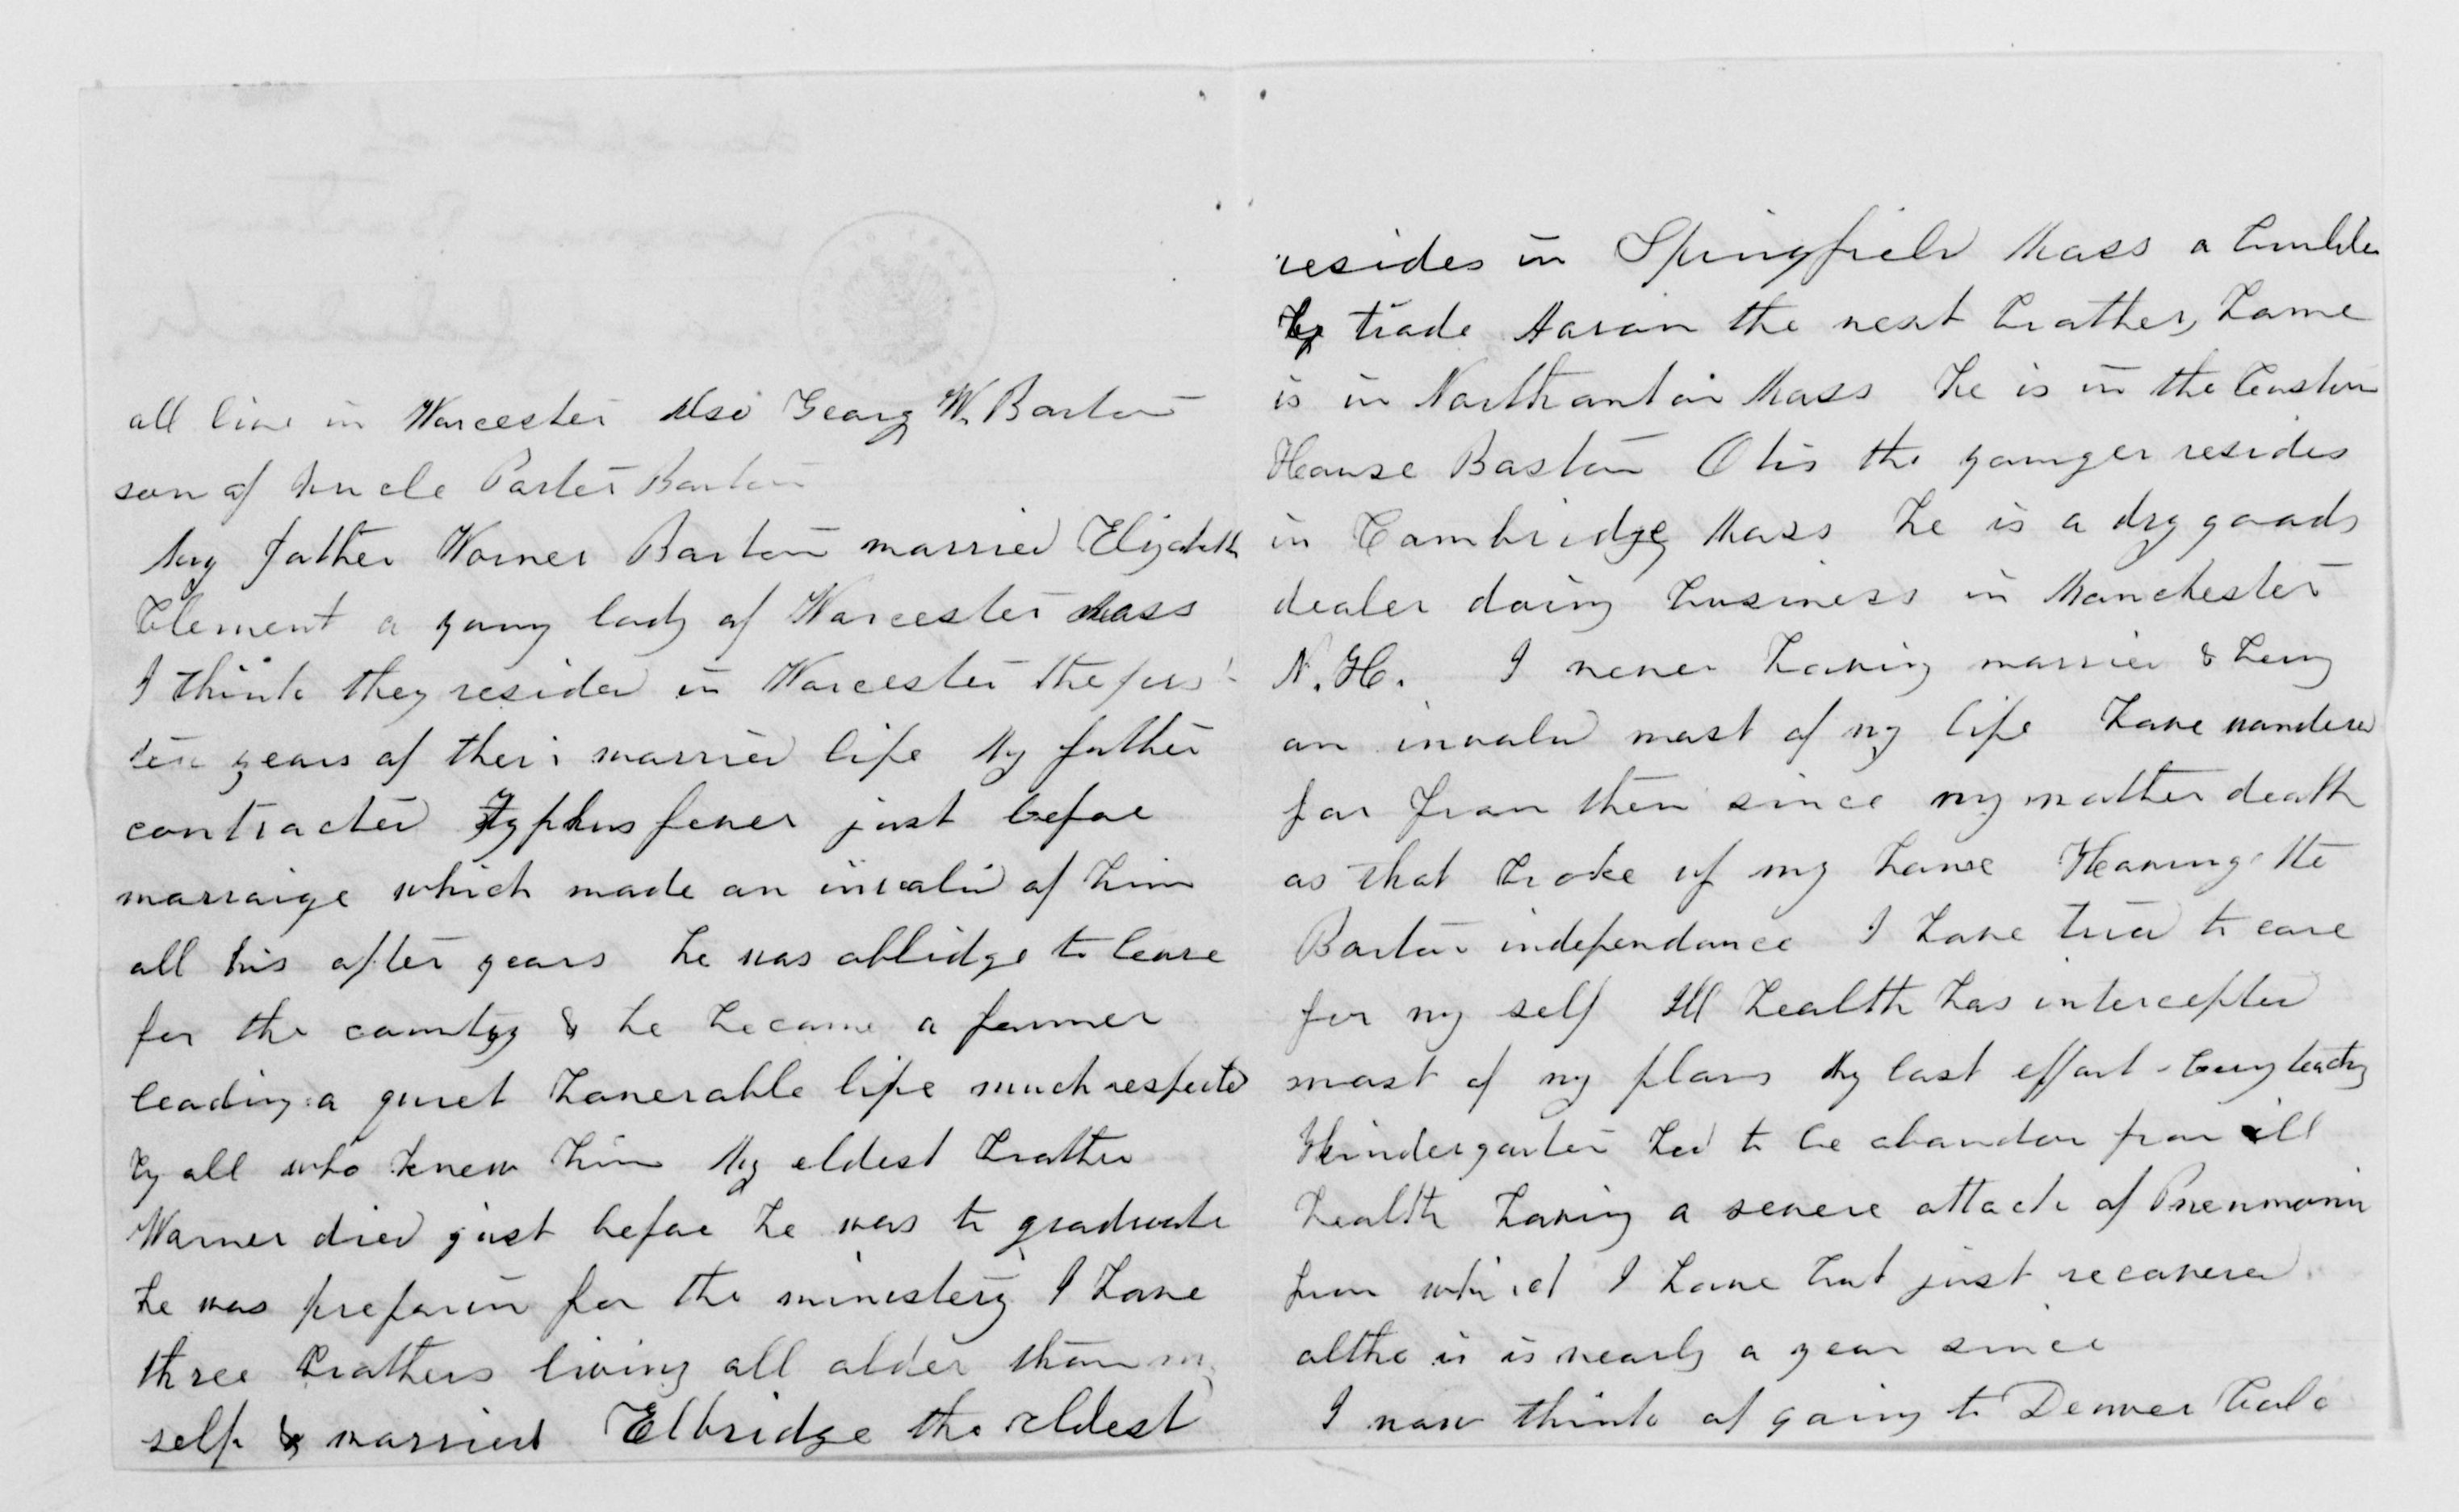 all live in Worcester Also Georg W. Barton
son of Uncle Porter Barton
My father Warner Barton married Elizabeth
Clement a young lady of Worcester Mass
I think they resided in Worcester the first
ten years of their married life My father
contracted Typhus fever just before
marraige which made an invalid of him
all his after years he was oblidge to leave
for the country & he became a farmer
leading a quiet honerable life much respected
by all who knew him My eldest brother
Warner died just before he was to graduate
he was preparin for the ministery I have
three brothers living all older than my
self & married Elbridge the eldest
resides in Springfield Mass a builder
by trade Aaron the next brother, home
is in Northamton Mass he is in the Custom
House Boston Otis the younger resides
in Cambridge Mass he is a dry goods
dealer doing business in Manchester
N. H. I never having married & being
an invalid most of my life have wandered
far from them since my mother death
as that broke up my home Having the
Barton independance I have tried to care
for my self Ill health has intercepted
most of my plans My last effort being teaching
Kindergarten had to be abandon from ill
health having a severe attack of Pneumonia
from which I have but just recovered
altho is is nearly a year since
I now think of going to Denver Colo